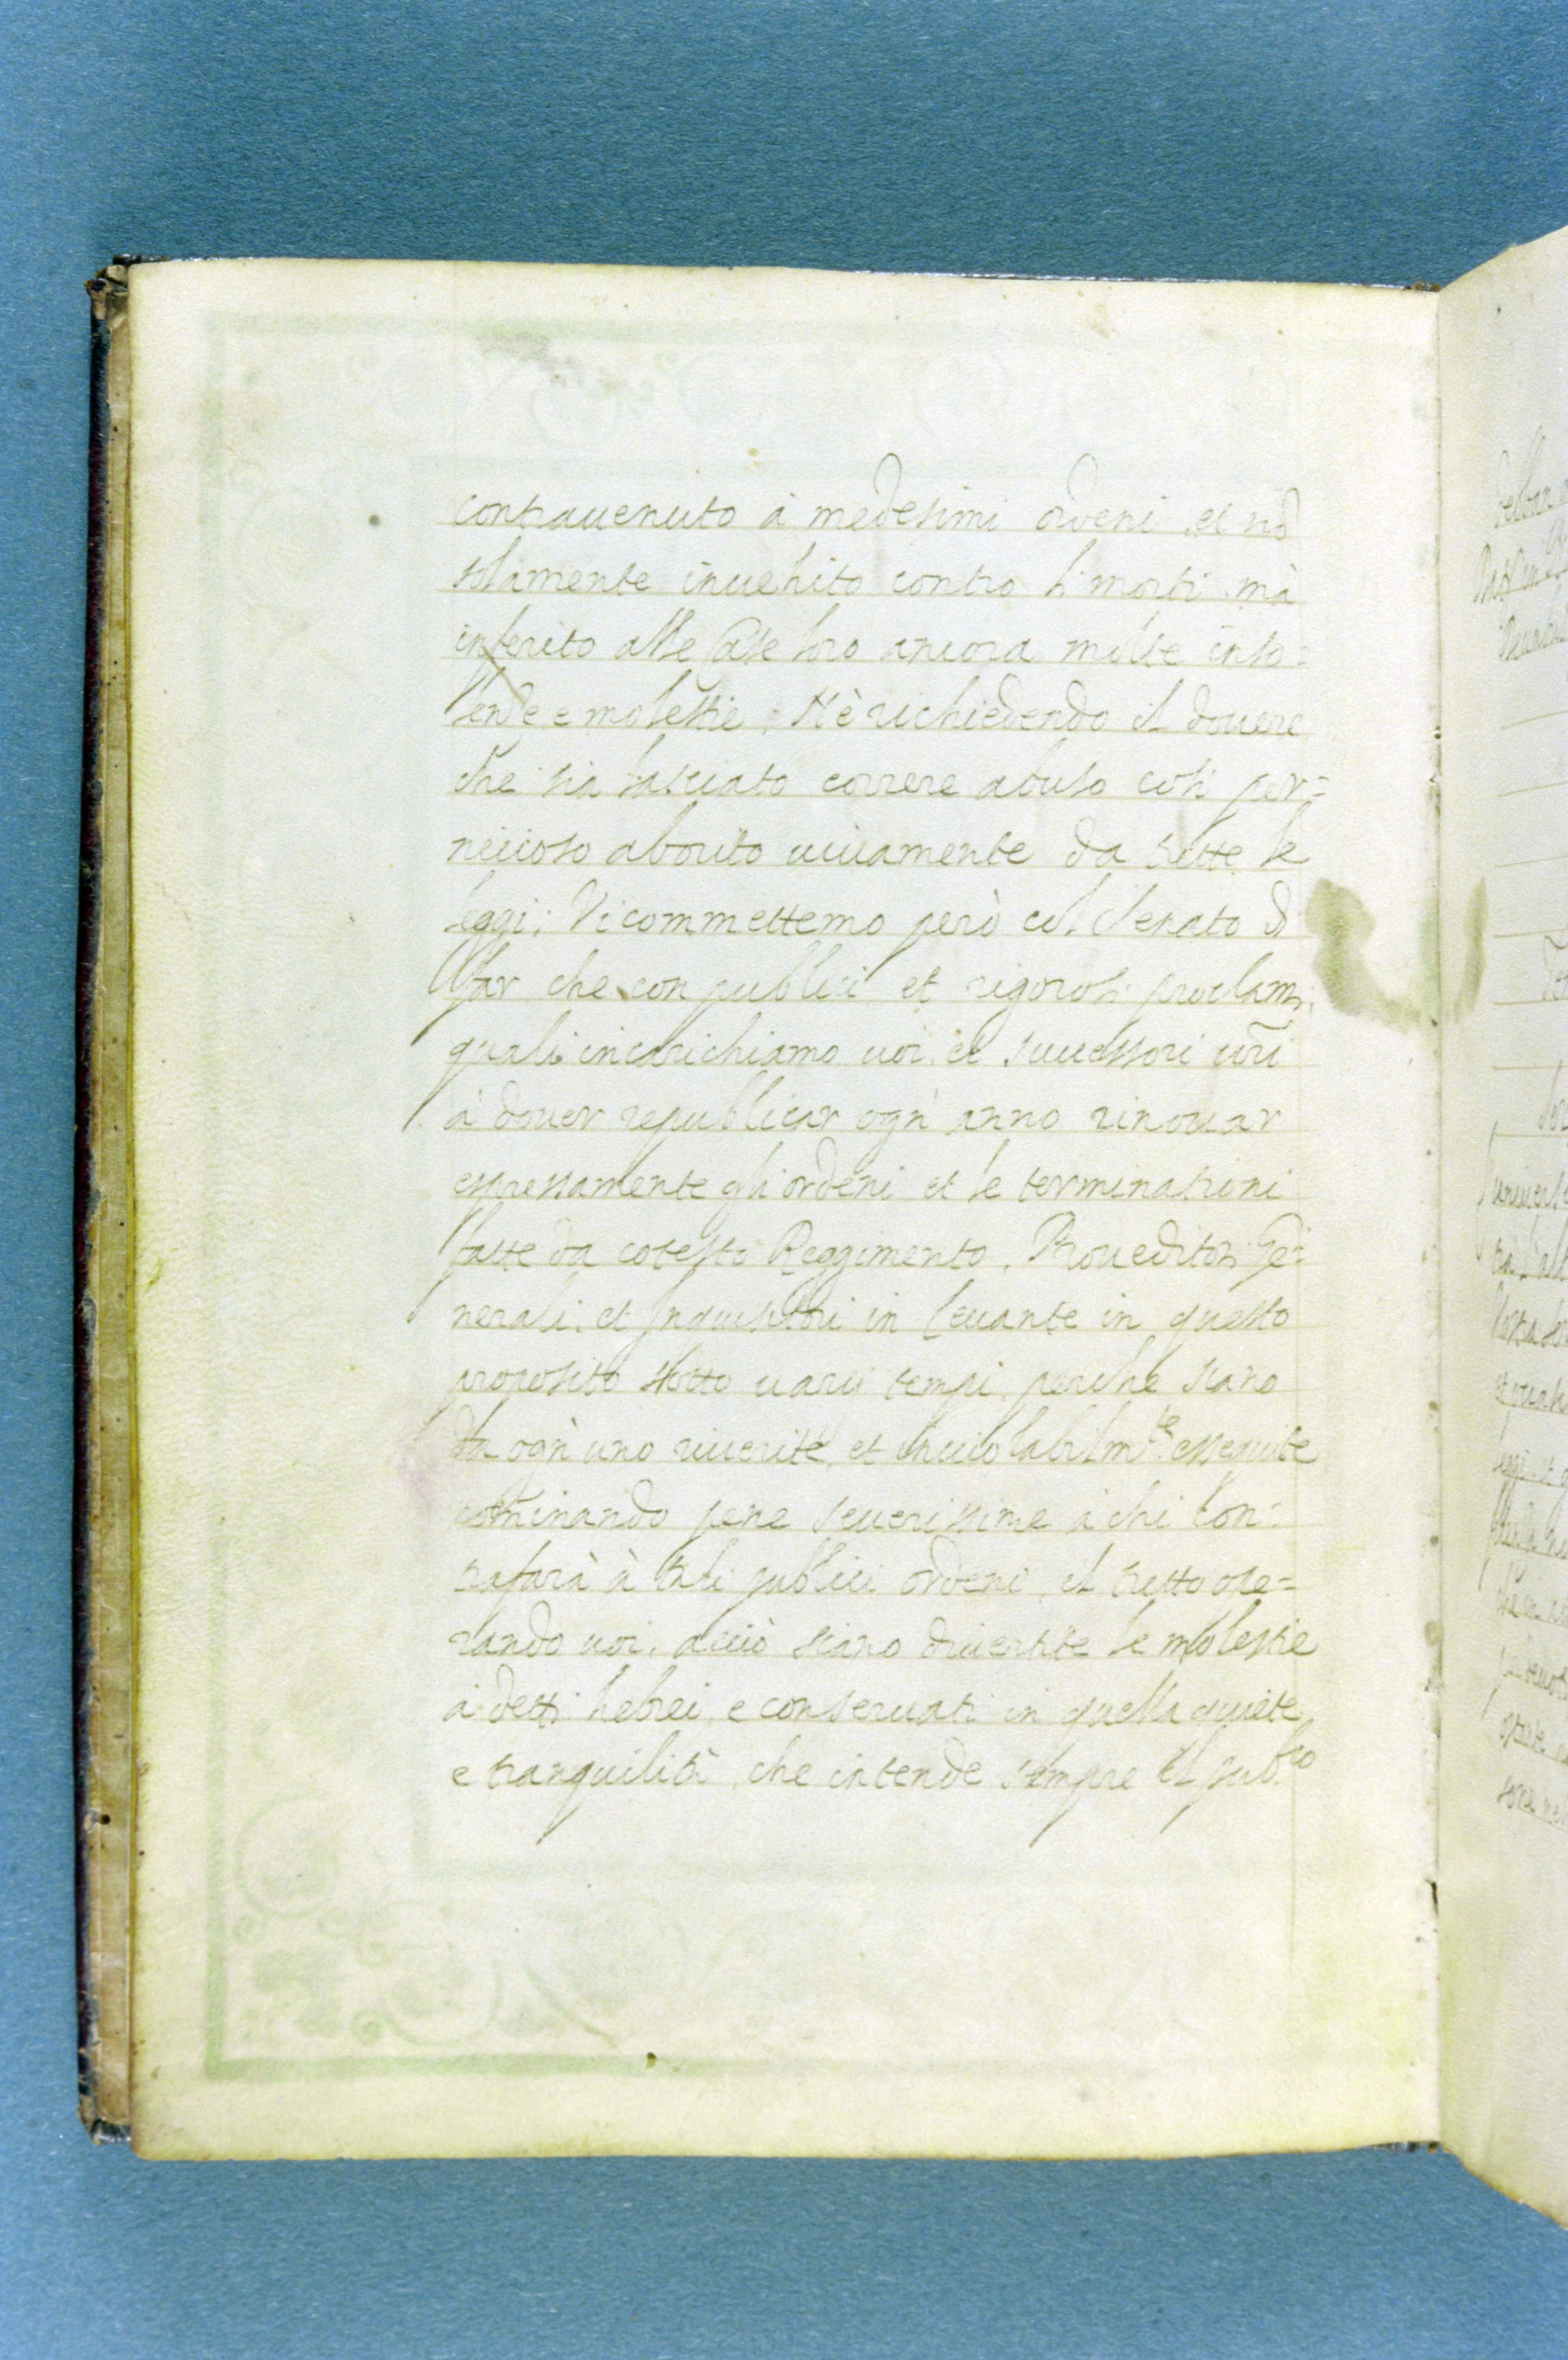 contrauenuto à medesimi ordeni, et nõ
solamente inuehito contro li morti mà
inferito alle Case loro ancora molte inso=
lenze e molestie; Nè richiedendo il douere
che sia lasciato correre abuso così per=
niccioso aborito uiuamente da tutte le
leggi; Vi commettemo però col Senato di
far che con publici et rigorosi proclami,
quali incarichiamo uoi, et successori uri
à douer republicar ogni anno rinouar
espressamente gli ordeni et le terminationi
fatte da cotesto Reggimento, Proueditori Ge=
nerali, et Inquisitori in Leuante in questo
proposito sotto uarii tempi, perche siano
da ogn'uno riuerite, et inuiolabilmte essequite
cominando pene seuerissime à chi con=
trafarà à tali publici ordeni, il tutto ope=
rando uoi, acciò siano diuertite le molestie
à detti hebrei, e conseruati in quella quiete,
e tranquilità, che intende sempre il pubco